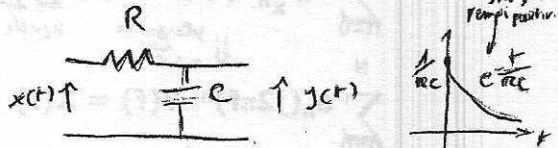 R
x(t) ↑
C
↑ y(t)
tempi positivi.
1/RC
e^-t/RC
t